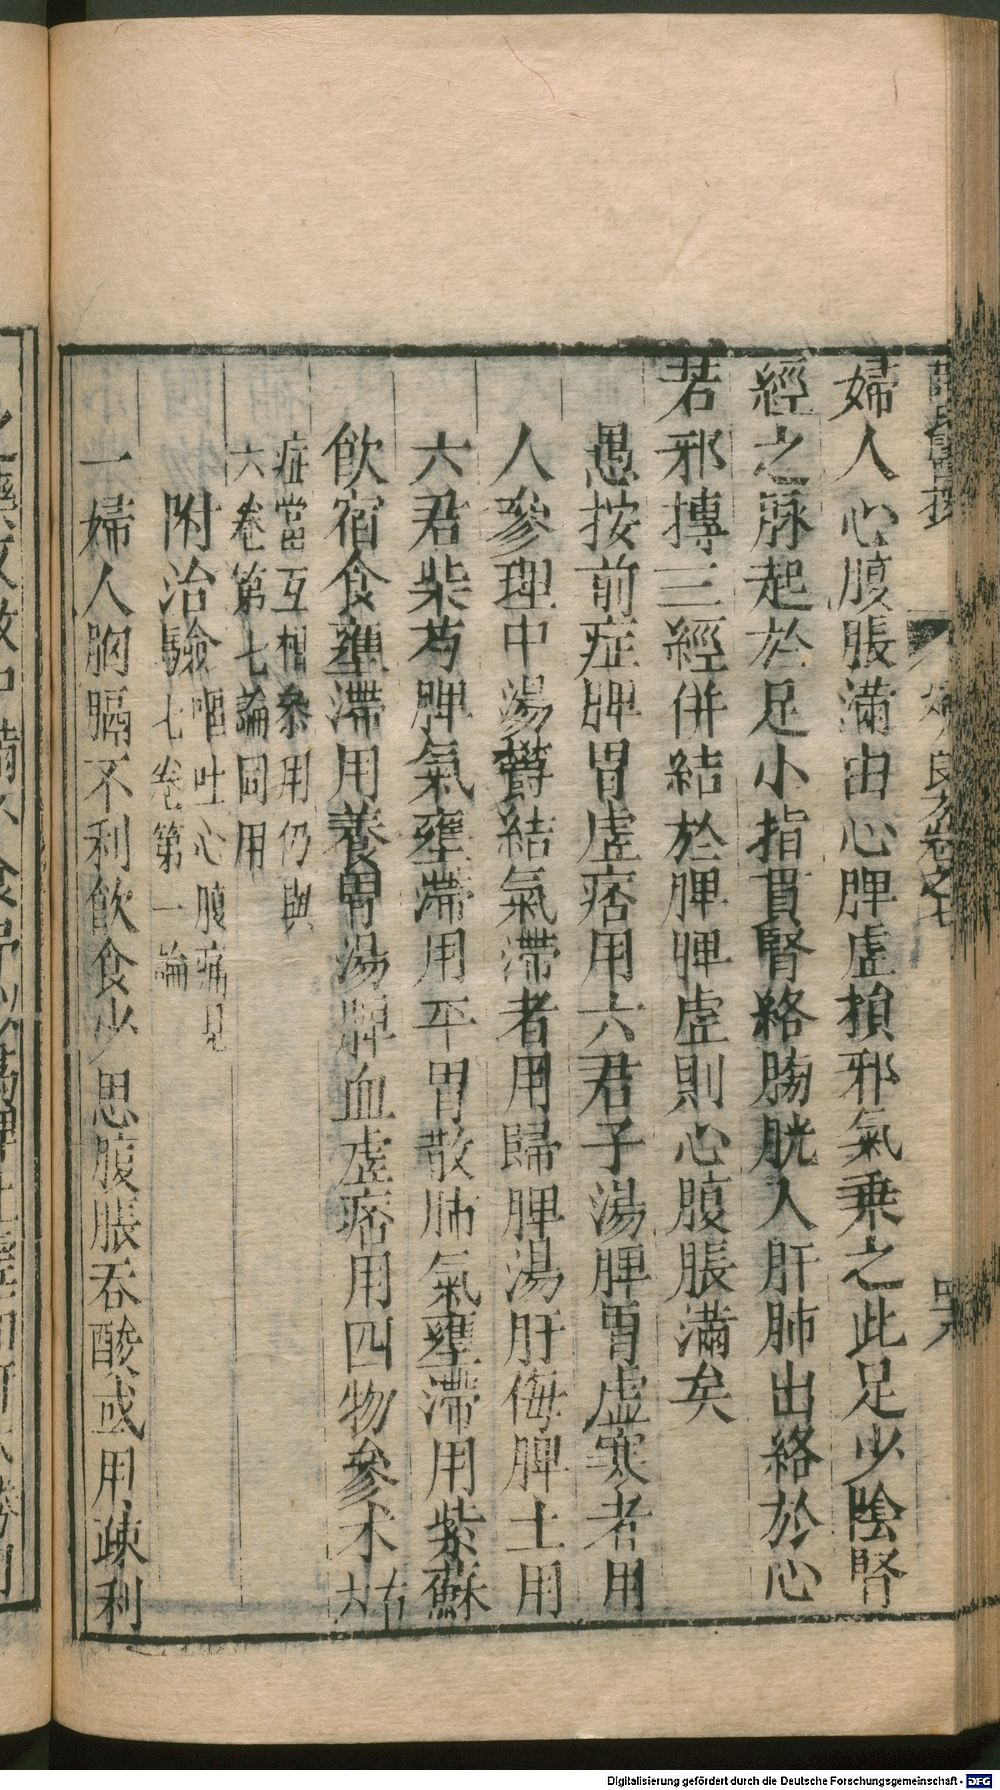 婦人心腹脹滿由心脾虛損邪氣乘之此足少陰腎
經之脉起於足小指貫腎絡膀胱入肝肺出絡於心
若邪搏三經併結於脾脾虛則心腹脹滿矣
愚按前症脾胃虛痞用六君子湯脾胃虛寒者用
人參理中湯欝結氣滯者用歸脾湯肝侮脾土用
六君柴芍脾氣壅滯用平胃散肺氣壅滯用紫蘇
飲宿食壅滯用養胃湯脾血虛痞用四物參术右六
症當互相叅用仍與
六卷第七論同用
附治驗嘔吐心腹痛見
七卷第一論
一婦人胸膈不利飲食少思腹脹吞酸或用疎利
卷之七
Digitalisierung gefördert durch die Deutsche Forschungsgemeinschaft - DFG